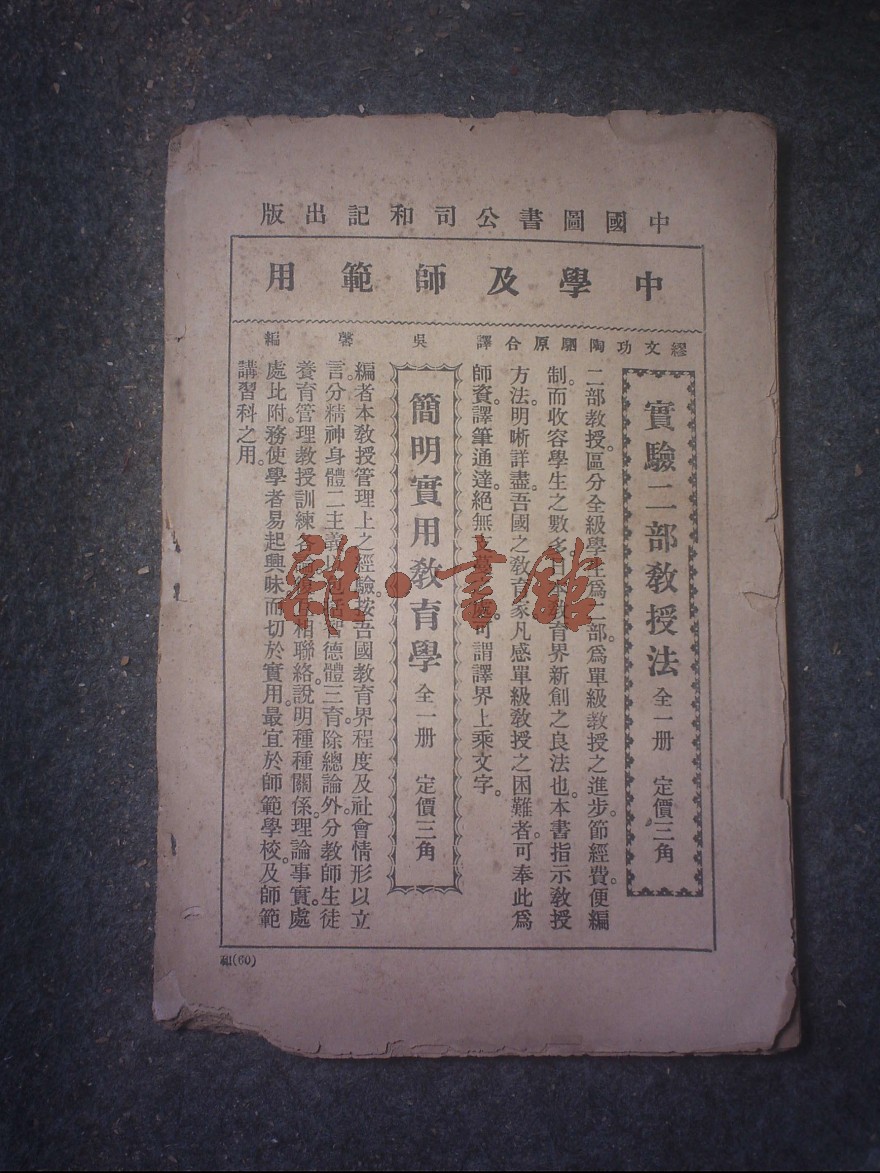 中國圖書公司和記出版
中學及師範用
繆文功陶騆原合譯
實驗二部教授法 全一册 定價三角
二部教授。區分全級學生爲二部。爲單級教授之進步。節經費。便編
制。而收容學生之數多。日本教育界新創之良法也。本書指示教授
方法。明晰詳盡。吾國之教育家。凡感單級教授之困難者。可奉此爲
師資。譯筆通達。絕無 處。可謂譯界上乘文字。
吳馨編
簡明實用教育學 全一册 定價三角
編者本教授管理上之經驗。按吾國教育界程度及社會情形以立
言。分精神身體二主義。以包括智德體三育。除總論外。分教師生徒
養育管理教授訓練各 相聯絡。說明種種關係。理論事實。處
處比附。務使學者易起興味而切於實用。最宜於師範學校。及師範
講習科之用。
和(60)
雜·書館